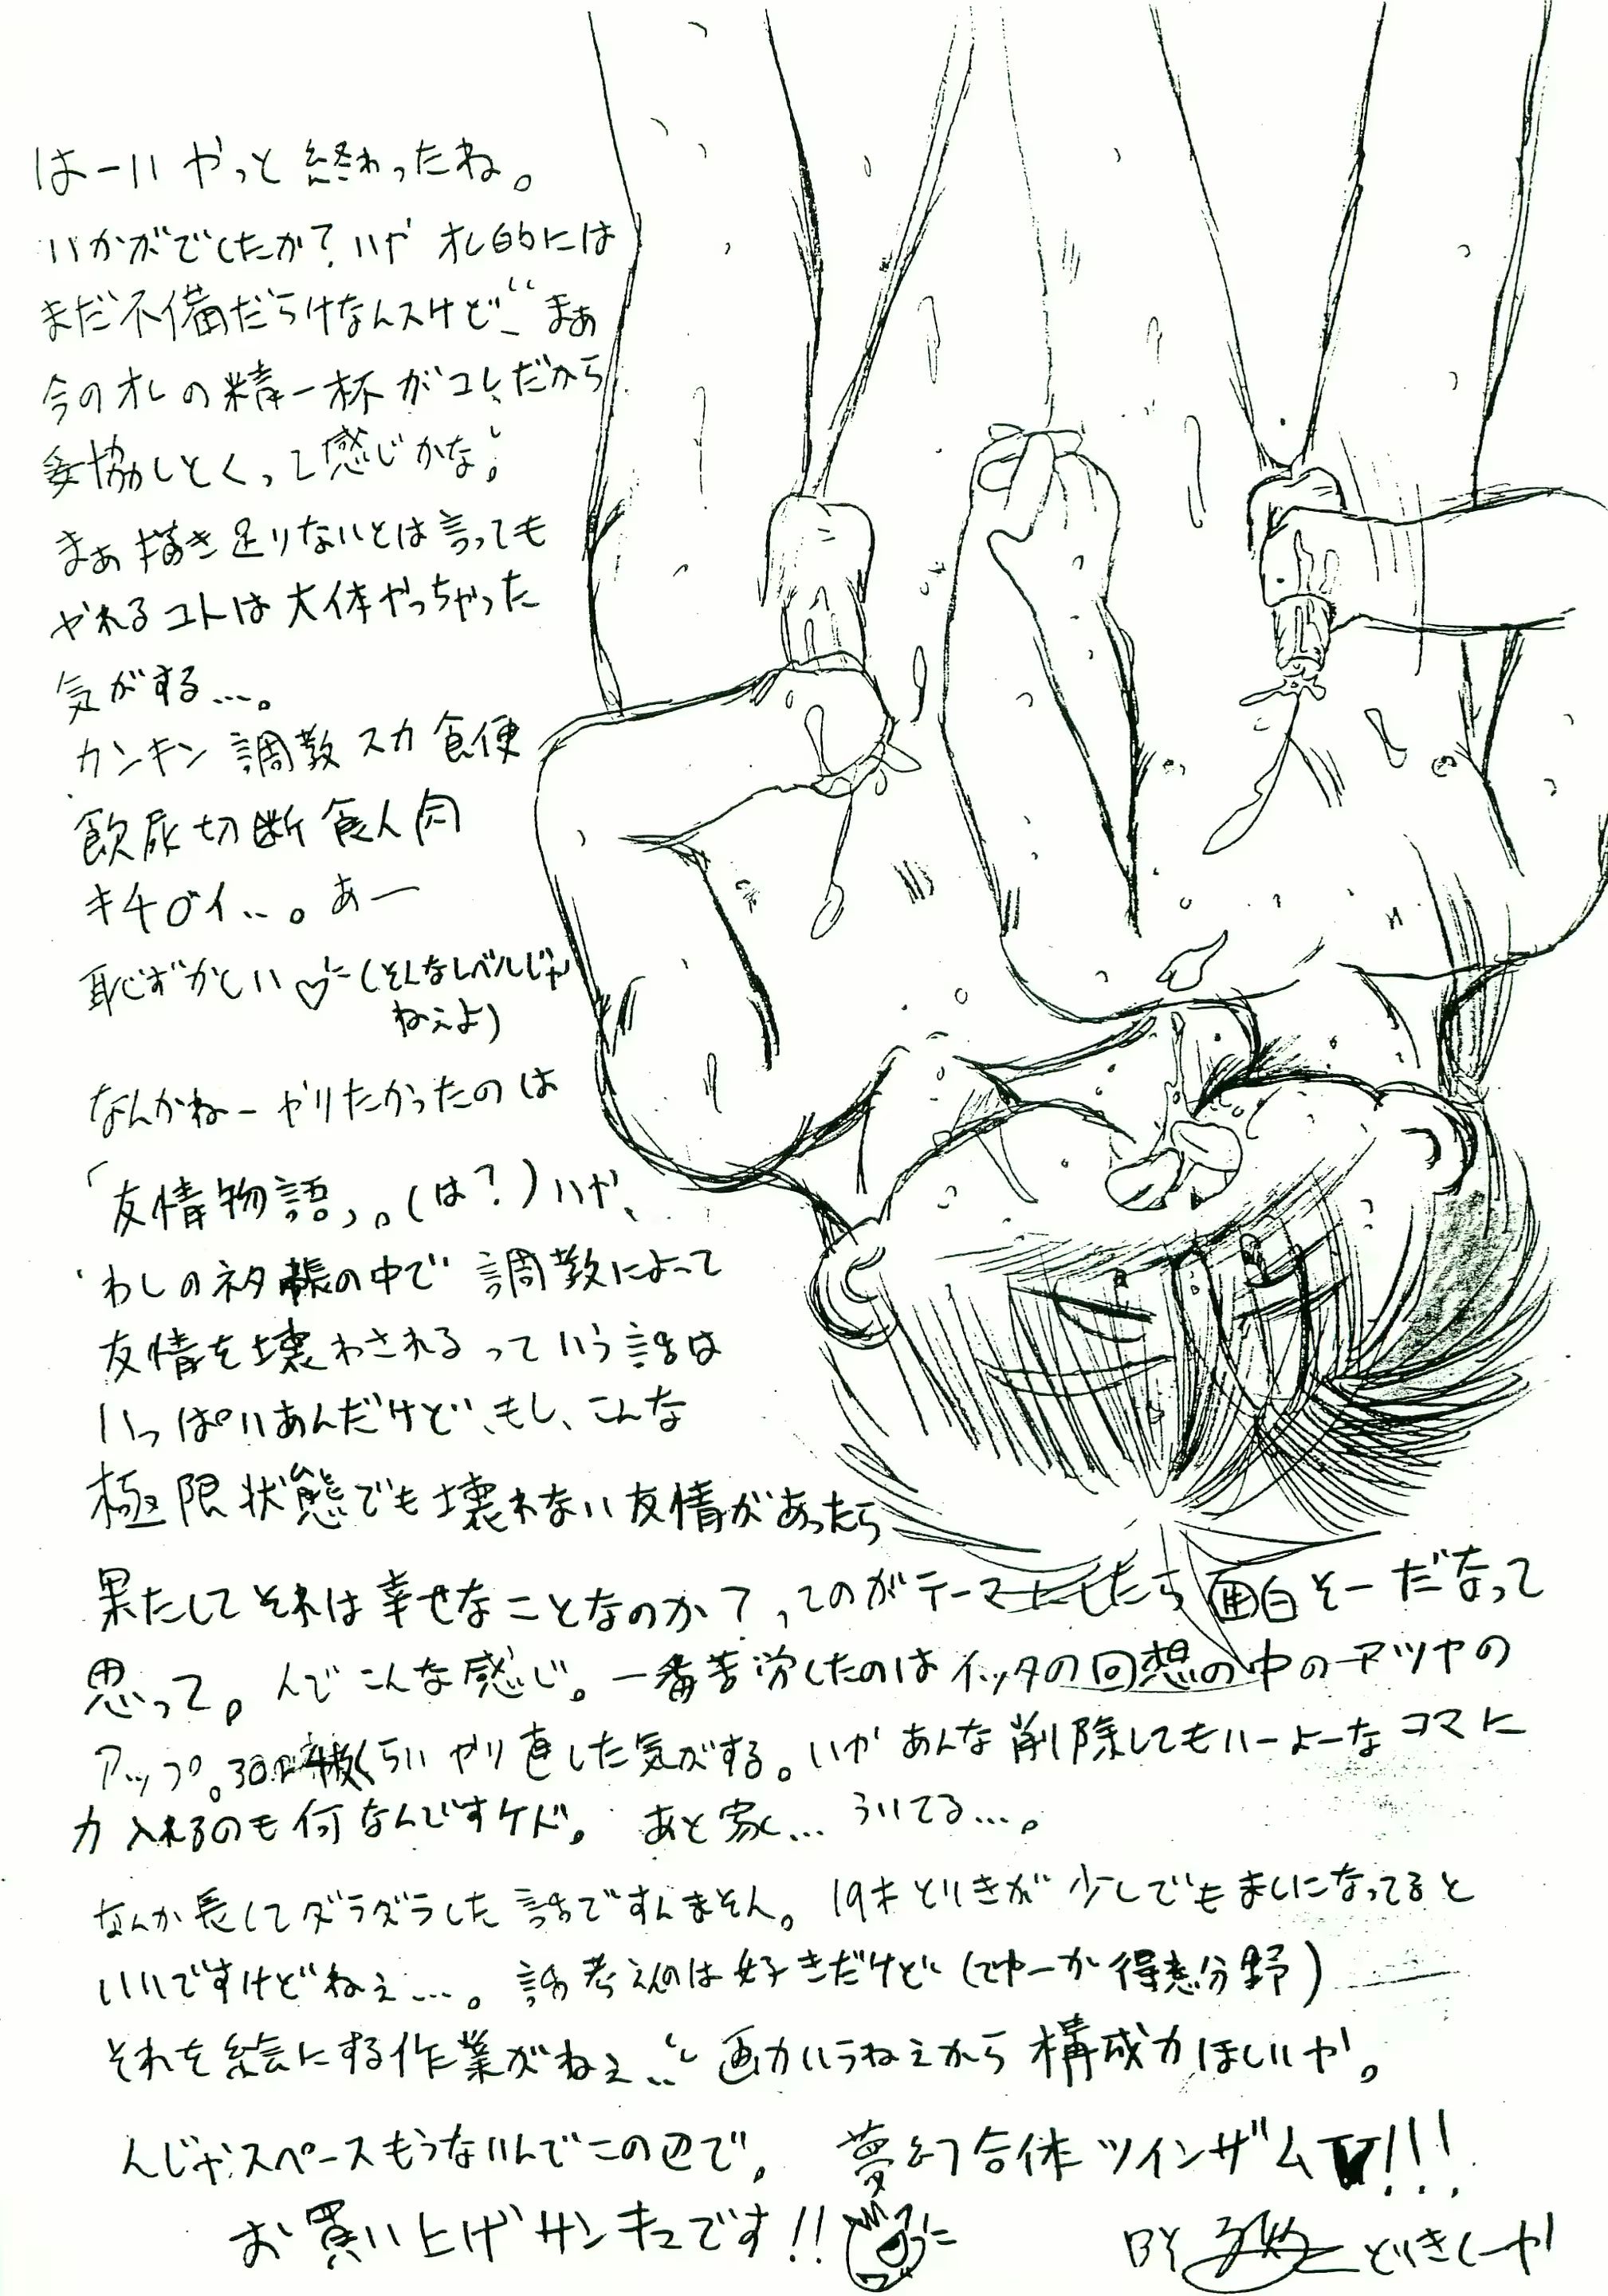 はーい やっと終わったね。
いかがでしたか?いや オレ的には
まだ不備だらけなんスけど… まぁ
今のオレの精一杯がコレだから
妥協しとくって感じかな。
まぁ描き足りないとは言っても
やれるコトは大体やっちゃった
気がする…。
カンキン 調教 スカ 食便
飲尿 切断 食人肉
キチ○イ…。あー
恥ずかしい♡(そんなレベルじゃ
ねぇよ)
なんかねーやりたかったのは
「友情物語」。(は?)いや、
わしのネタ帳の中で調教によって
友情を壊わされるっていう話は
いっぱいあんだけど、もし、こんな
極限状態でも壊れない友情があったら
果たしてそれは幸せなことなのか?ってのがテーマにしたら面白そーだなって
思って。んでこんな感じ。一番苦労したのはイッタの回想の中のアツヤの
アップ。30枚くらいやり直した気がする。いやあんな削除してもいーよーなコマに
力入れるのも何なんですケド。 あと家… ういてる…。
なんか長くてダラダラした話ですんません。19才どいきが少しでもましになってると
いいですけどねぇ…。話考えんのは好きだけど(てゆーか得意分野)
それを絵にする作業がねぇ… 画力いらねえから構成力ほしいや。
んじゃスペースもうないんでこの辺で。 夢幻合体ツインザムV!!!
お買い上げサンキュです!!
BY どいきしーや